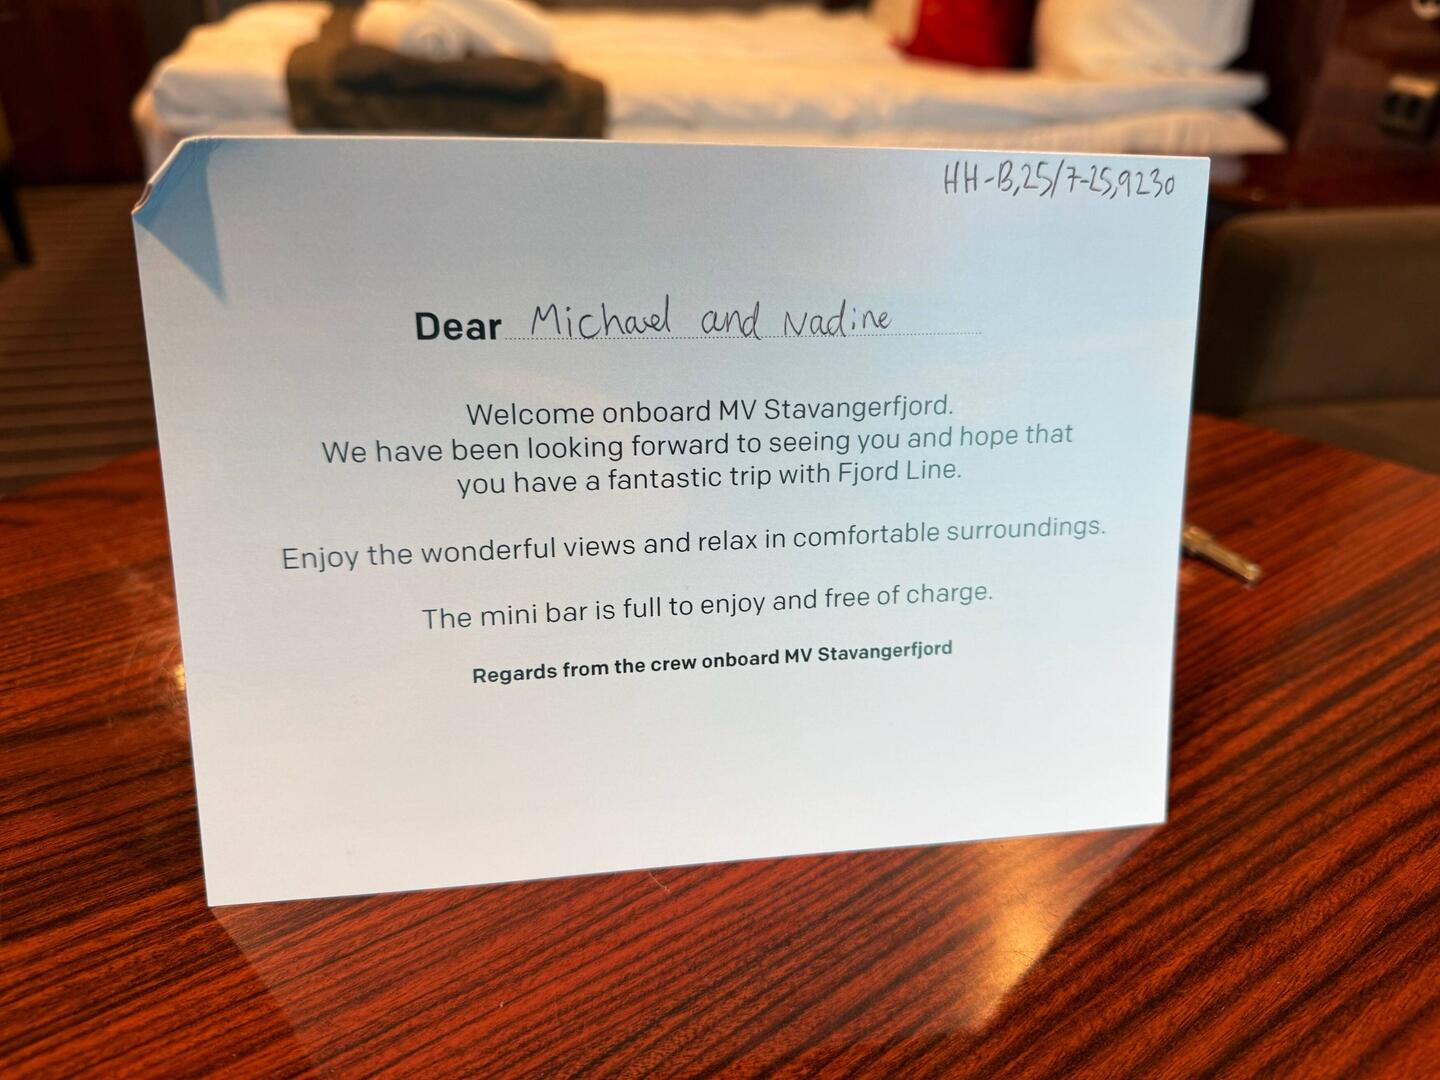 HH-B,25/7-25,9230
Dear Michael and Nadine
Welcome onboard MV Stavangerfjord.
We have been looking forward to seeing you and hope that
you have a fantastic trip with Fjord Line.
Enjoy the wonderful views and relax in comfortable surroundings.
The mini bar is full to enjoy and free of charge.
Regards from the crew onboard MV Stavangerfjord